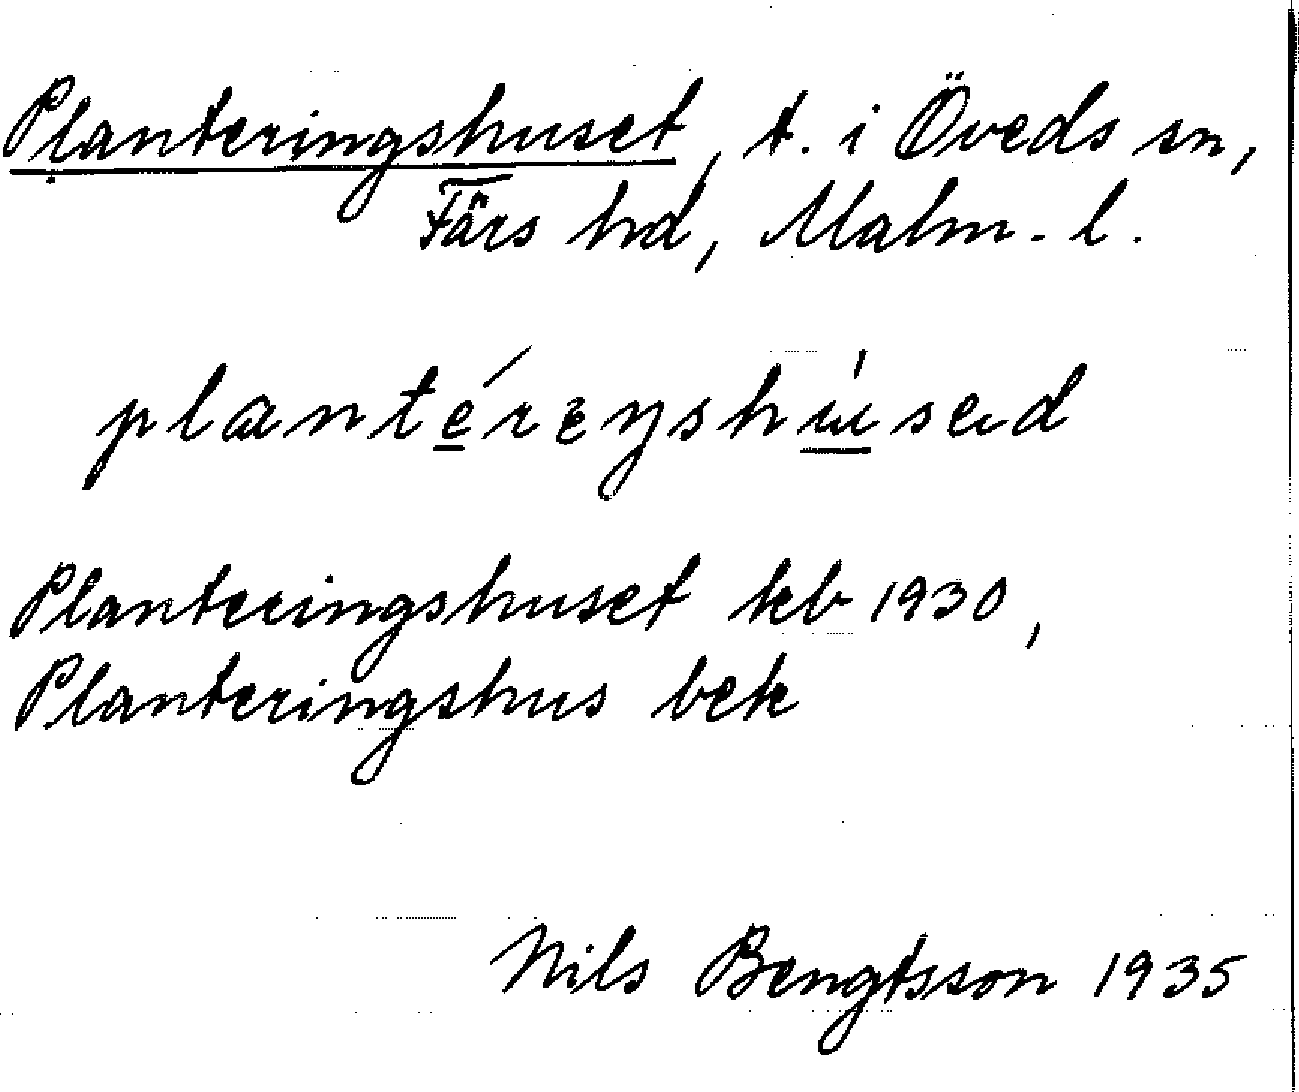 Planteringshuset, t. i Öveds sn,
Färs hd, Malm. l.
plantérɛŋshu̇sed
Planteringshuset kb 1930,
Planteringshus bek
Nils Bengtsson 1935